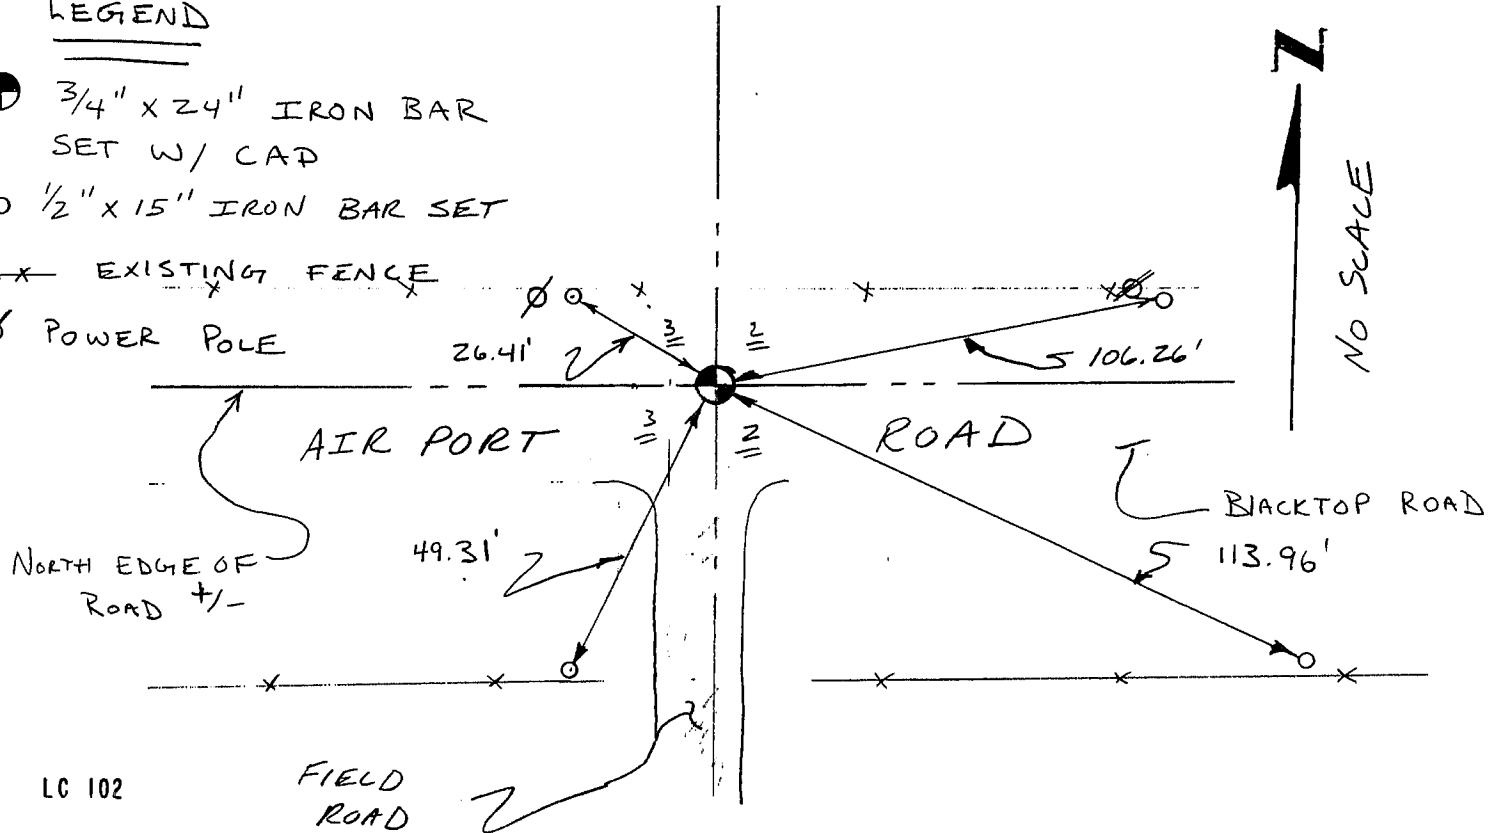 LEGEND
3/4" x 24" IRON BAR
SET W/ CAP
1/2" x 15" IRON BAR SET
EXISTING FENCE
POWER POLE
N
NO SCALE
26.41'
3
2
106.26'
AIR PORT
3
2
ROAD
BLACKTOP ROAD
NORTH EDGE OF
ROAD +/-
49.31'
113.96'
FIELD
ROAD
LC 102